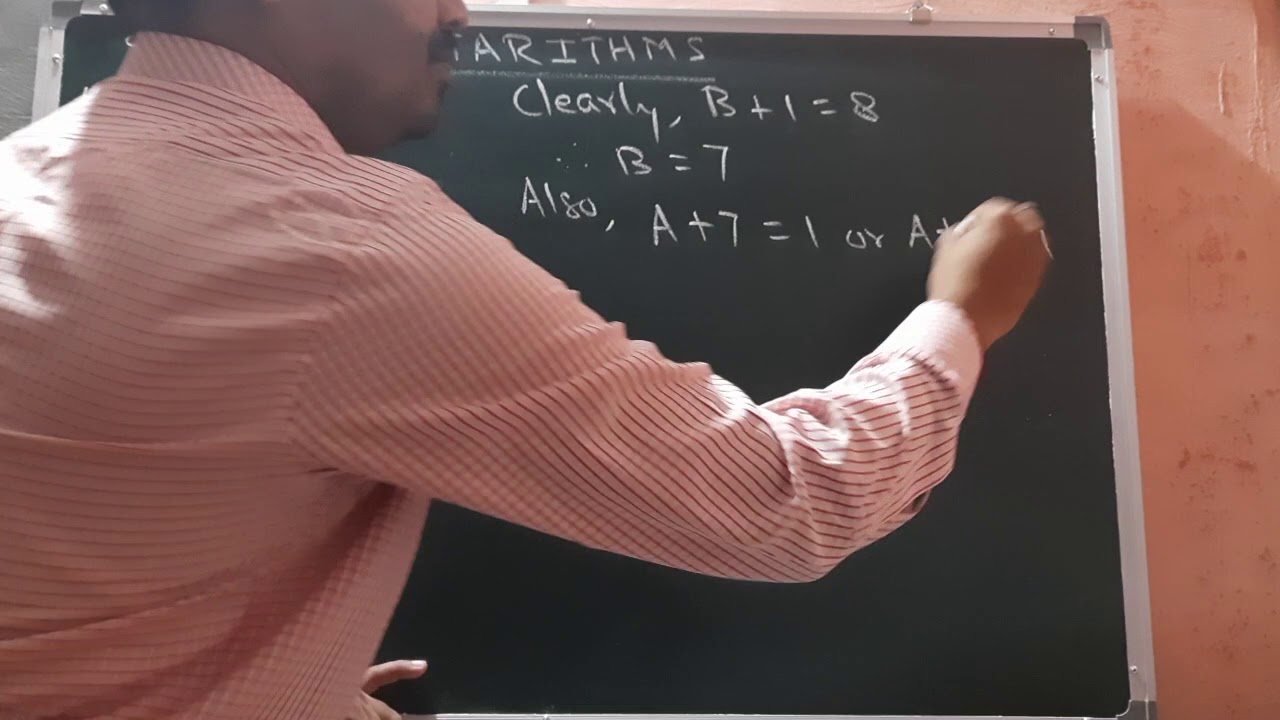 TARITHMS
Clearly, B + 1 = 8
∴ B = 7
Also, A + 7 = 1 or A +